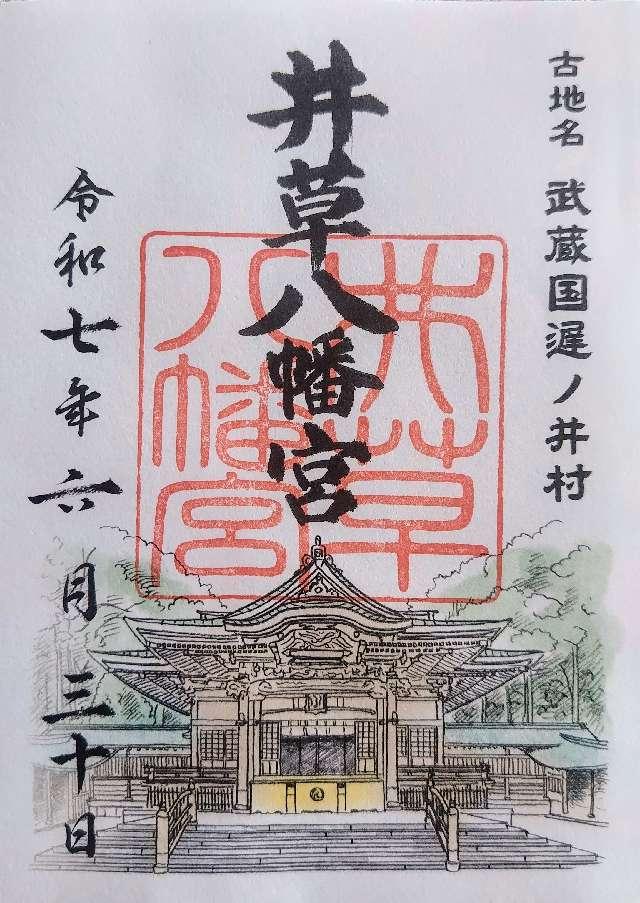 古地名 武蔵国遅ノ井村
井草八幡宮
井草
八幡宮
令和七年六月三十日